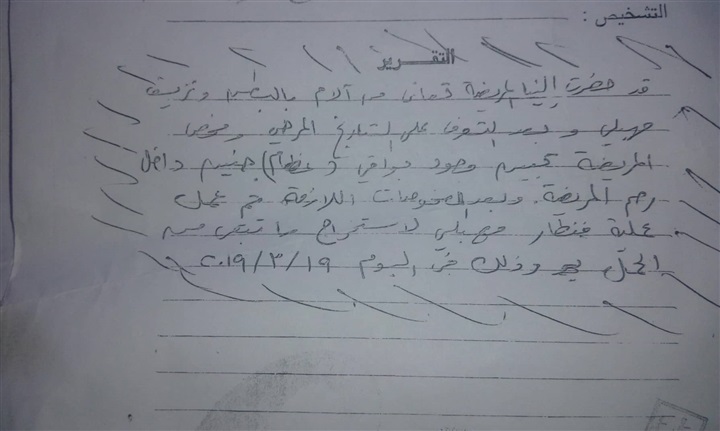 التشخيص :
التقرير
قد حضرت إلينا المريضة تعاني من آلام بالبطن ونزيف
مهبلي وبعد التعرف على التاريخ المرضي وفحص
المريضة تبين وجود بواقي (عظام) جنين داخل
رحم المريضة. وبعد الفحوصات اللازمة تم عمل
عملية منظار مهبلي لاستخراج ما تبقى من
الحمل وذلك في اليوم ٢٠١٩/٣/١٩